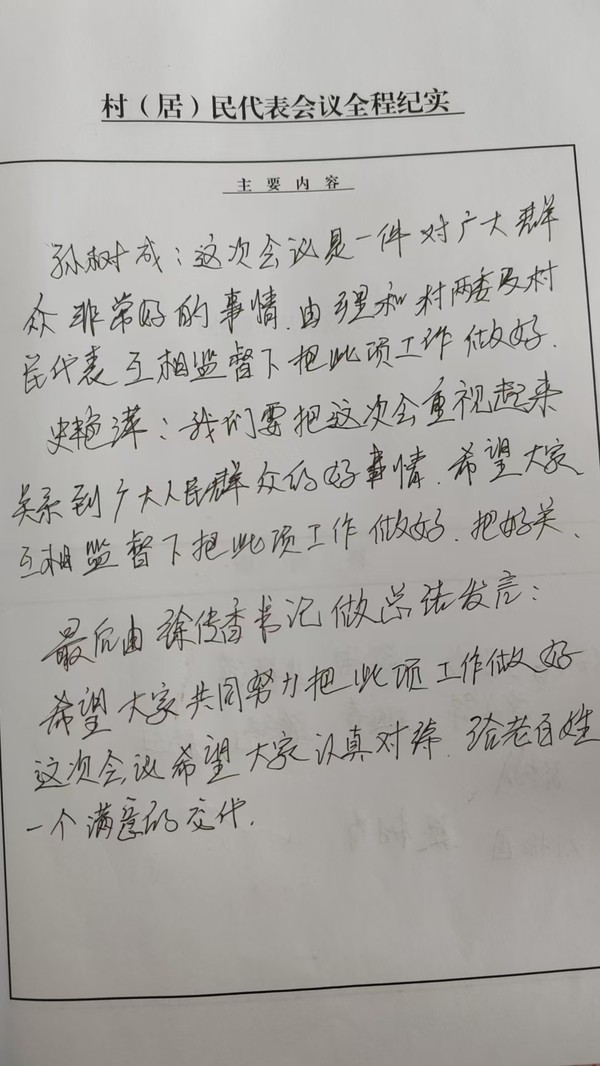 村（居）民代表会议全程纪实
主要内容
孙树成：这次会议是一件对广大群
众非常好的事情.由理和村两委及村
民代表互相监督下把此项工作做好.
史艳萍：我们要把这次会重视起来
关系到广大人民群众的好事情.希望大家
互相监督下把此项工作做好.把好关、
最后由徐传香书记做总结发言：
希望大家共同努力把此项工作做好
这次会议希望大家认真对待.给老百姓
一个满意的交代.